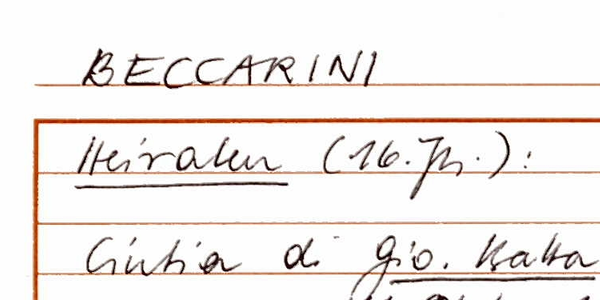 BECCARINI
Heiraten (16. Jh.):
Cintia di Gio. Batta